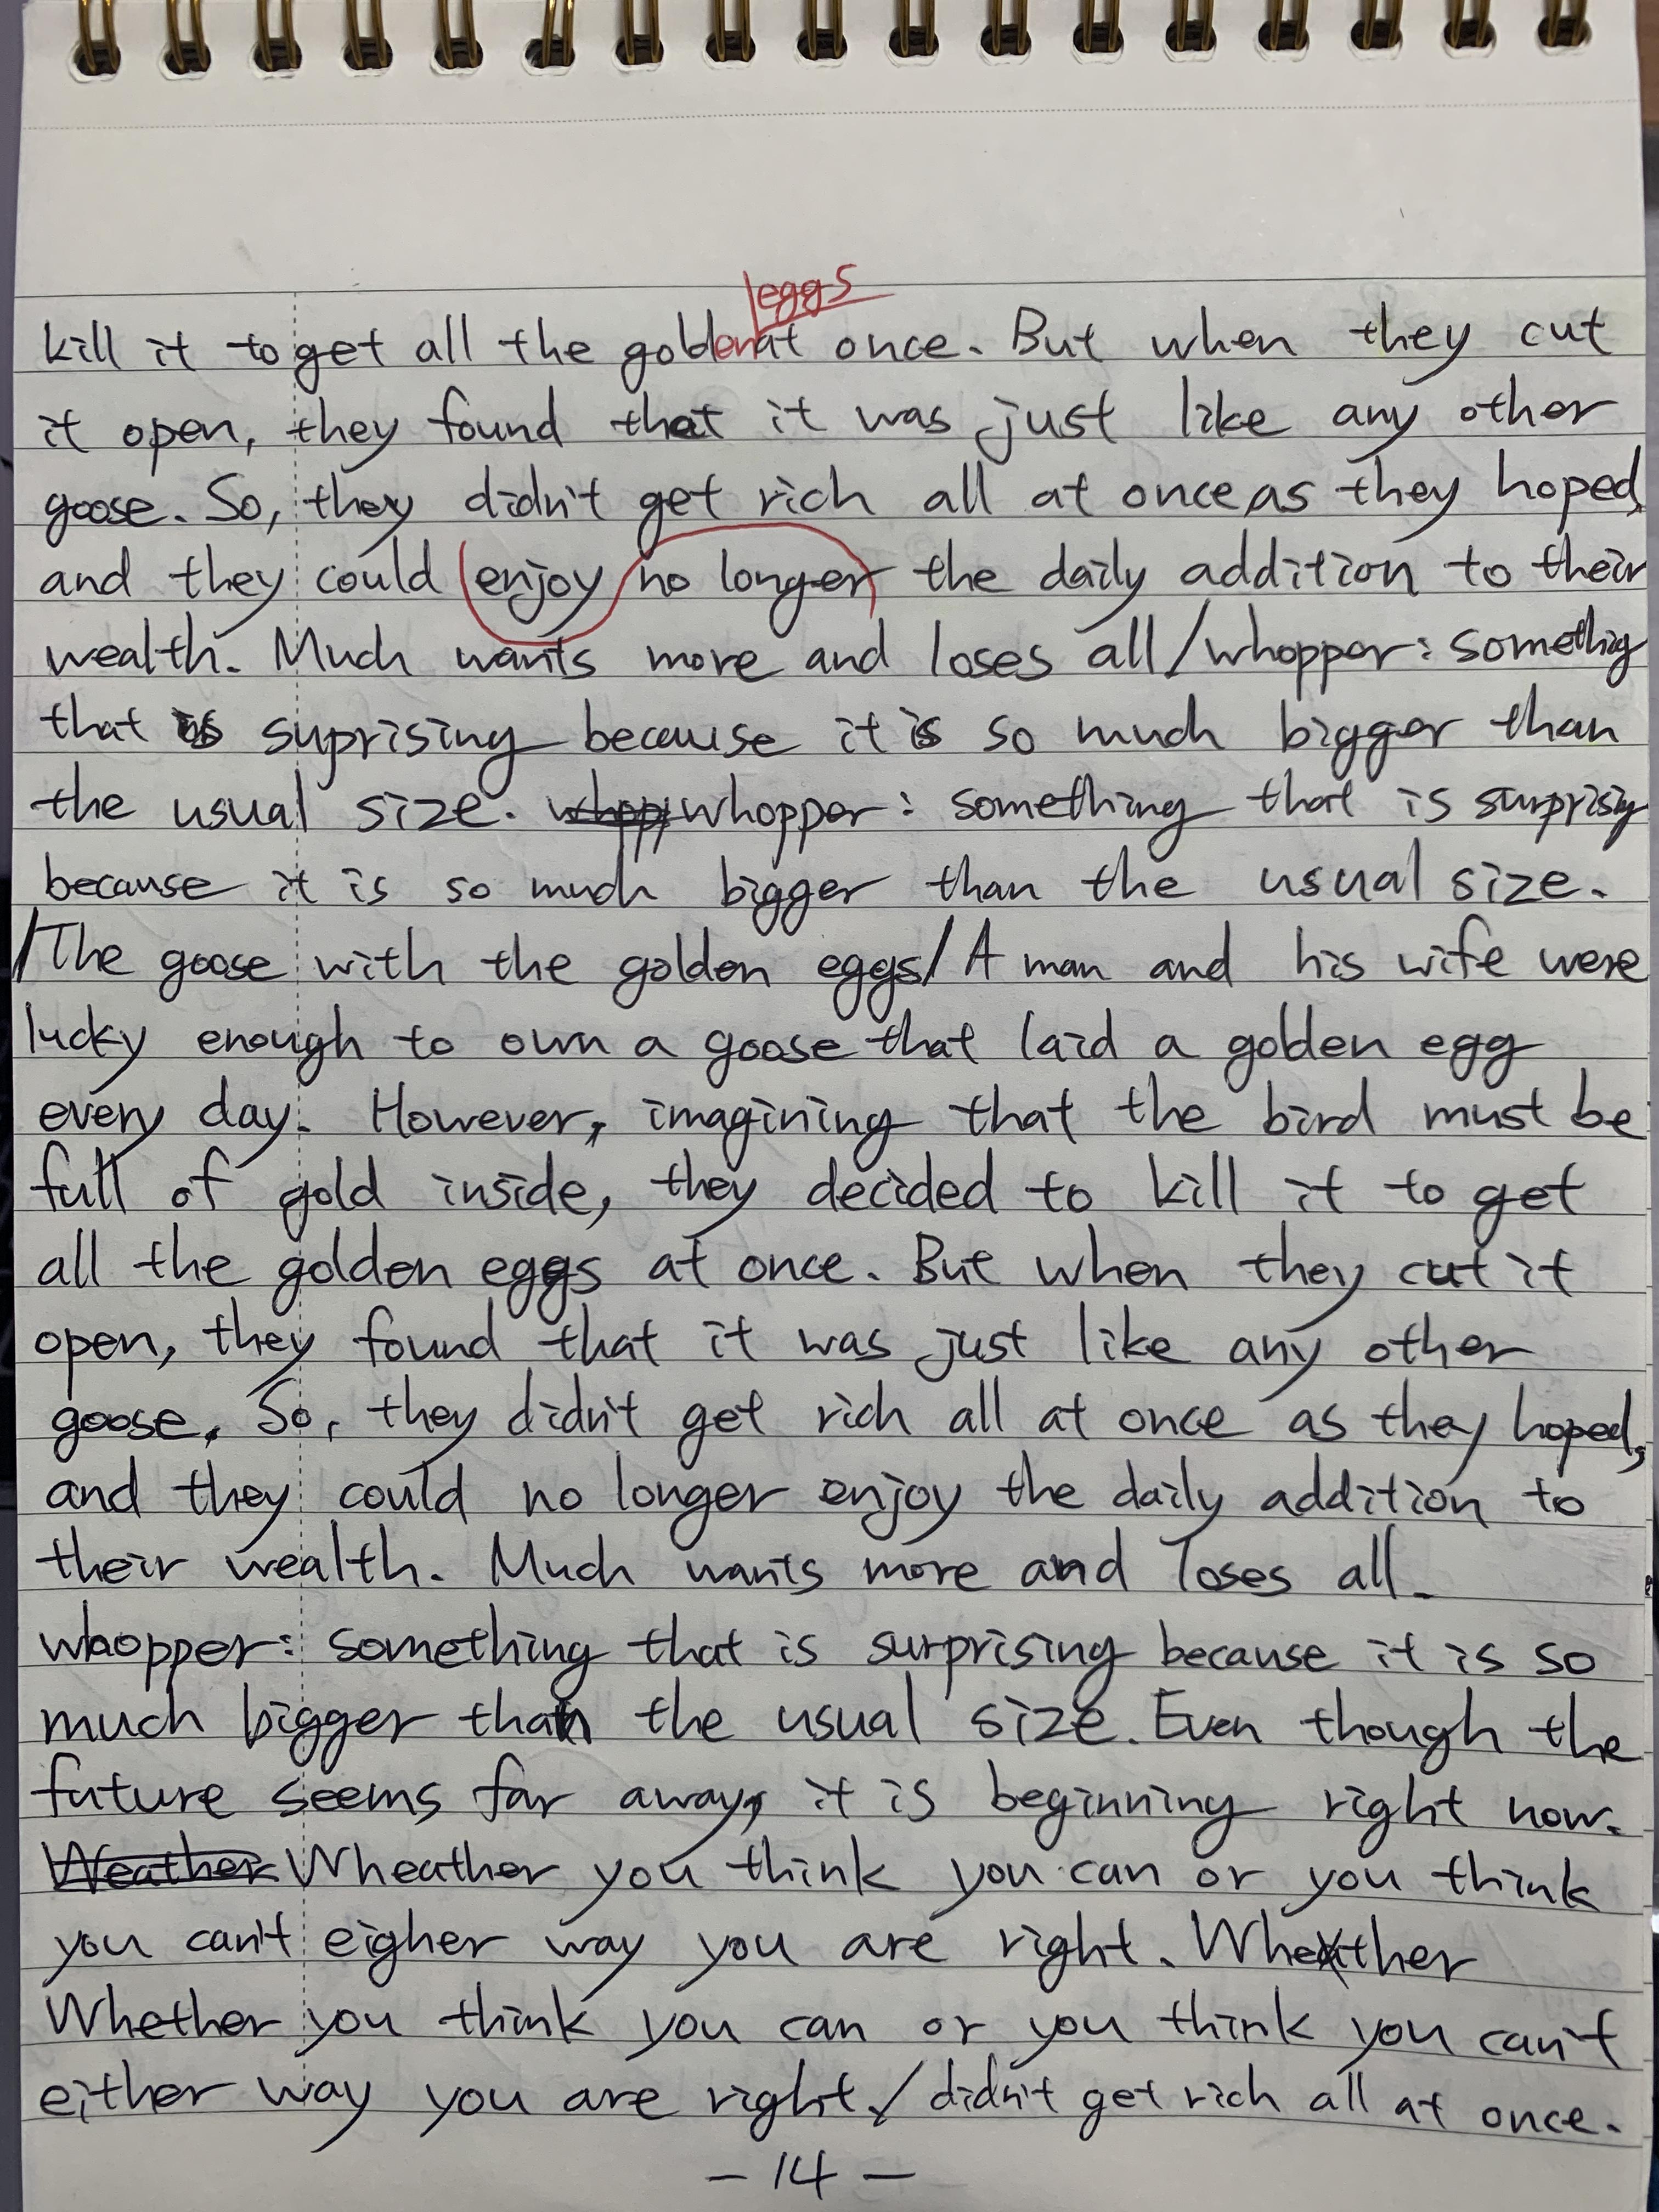 eggs
kill it to get all the golden at once. But when they cut
it open, they found that it was just like any other
goose. So, they didn't get rich all at once, as they hoped,
and they could enjoy no longer the daily addition to their
wealth. Much wants more and loses all/whopper: something
that is suprising because it is so much bigger than
the usual size. whopp whopper: something that is surprising
because it is so much bigger than the usual size.
/The goose with the golden eggs/ A man and his wife were
lucky enough to own a goose that laid a golden egg
every day. However, imagining that the bird must be
full of gold inside, they decided to kill it to get
all the golden eggs at once. But when they cut it
open, they found that it was just like any other
goose. So, they didn't get rich all at once as they hoped,
and they could no longer enjoy the daily addition to
their wealth. Much wants more and loses all.
whopper: something that is surprising because it is so
much bigger than the usual size. Even though the
future seems far away, it is beginning right now.
Weather Wheather you think you can or you think
you can't eigher way you are right. Wheather
Whether you think you can or you think you can't
either way you are right./ didn't get rich all at once.
- 14 -